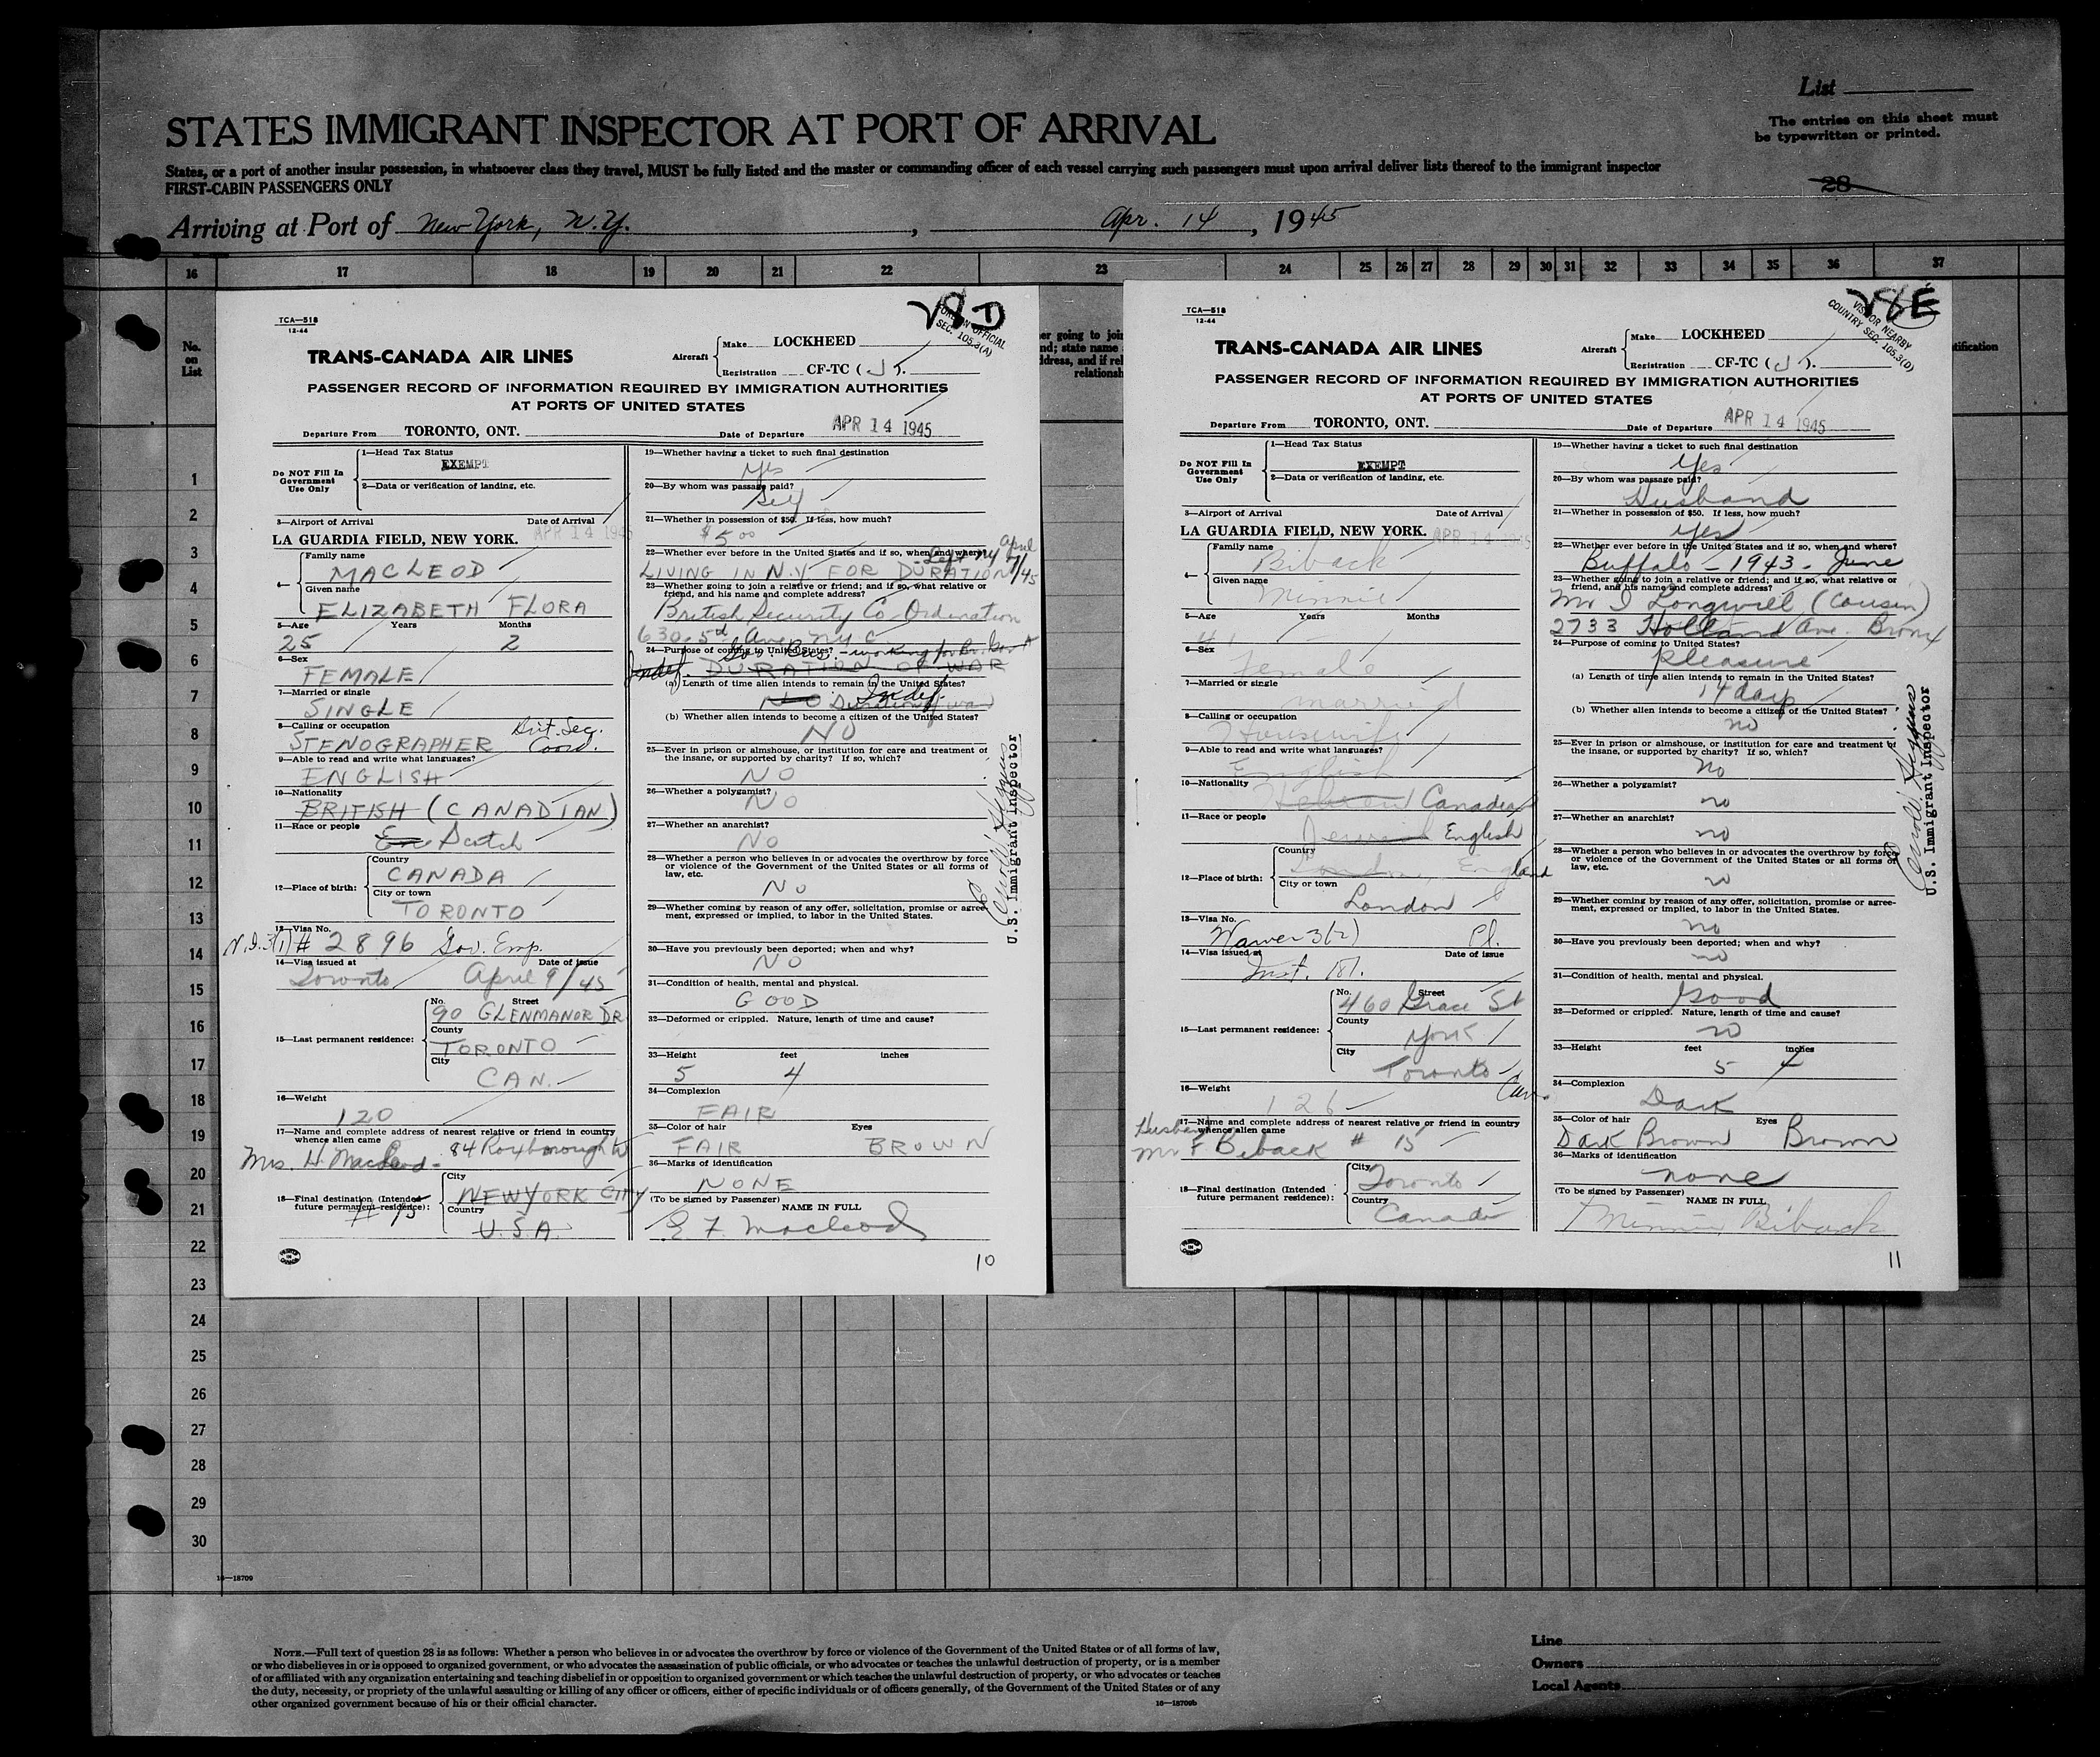 List
The entries on this sheet must
be typewritten or printed.
STATES IMMIGRANT INSPECTOR AT PORT OF ARRIVAL
States, or a port of another insular possession, in whatsoever class they travel, MUST be fully listed and the master or commanding officer of each vessel carrying such passengers must upon arrival deliver lists thereof to the immigrant inspector
FIRST-CABIN PASSENGERS ONLY
28
Arriving at Port of New York, N.Y. , Apr. 14 , 1945
16 17 18 19 20 21 22 23 24 25 26 27 28 29 30 31 32 33 34 35 36 37
No.
on
List
TCA—518
12-44
V8D
FOREIGN OFFICIAL
SEC. 105.3(A)
TRANS-CANADA AIR LINES
Aircraft
Make LOCKHEED
Registration CF-TC ( J ).
PASSENGER RECORD OF INFORMATION REQUIRED BY IMMIGRATION AUTHORITIES
AT PORTS OF UNITED STATES
Departure From TORONTO, ONT. Date of Departure APR 14 1945
Do NOT Fill In
Government
Use Only
1—Head Tax Status
EXEMPT
2—Data or verification of landing, etc.
3—Airport of Arrival Date of Arrival
LA GUARDIA FIELD, NEW YORK. APR 14 1945
4— Family name
MACLEOD
Given name
ELIZABETH FLORA
5—Age Years Months
25 2
6—Sex
FEMALE
7—Married or single
SINGLE
8—Calling or occupation Brit. Sec.
STENOGRAPHER Coord.
9—Able to read and write what languages?
ENGLISH
10—Nationality
BRITISH (CANADIAN)
11—Race or people
En Scotch
12—Place of birth:
Country
CANADA
City or town
TORONTO
13—Visa No.
N.I. 3(1) # 2896 Gov. Emp.
14—Visa issued at Date of issue
Toronto April 9/45
15—Last permanent residence:
No. Street
90 GLENMANOR DR
County
TORONTO
City
CAN.
16—Weight
120
17—Name and complete address of nearest relative or friend in country
whence alien came
Mrs. H. MacLeod - 84 Roxborough W
18—Final destination (Intended
future permanent residence):
# 15
City
NEW YORK CITY
Country
U.S.A.
19—Whether having a ticket to such final destination
Yes
20—By whom was passage paid?
Self
21—Whether in possession of $50. If less, how much?
$5.00
22—Whether ever before in the United States and if so, when and where?
Left NY April 7/45
LIVING IN N.Y. FOR DURATION
23—Whether going to join a relative or friend; and if so, what relative or
friend, and his name and complete address?
British Security Co Ordination
630 - 5th Ave NYC
24—Purpose of coming to United States? Gov Bus. - working for Br. Gov't
Indef. DURATION OF WAR
(a) Length of time alien intends to remain in the United States?
NO Duration of war Indef.
(b) Whether alien intends to become a citizen of the United States?
NO
25—Ever in prison or almshouse, or institution for care and treatment of
the insane, or supported by charity? If so, which?
NO
26—Whether a polygamist?
NO
27—Whether an anarchist?
NO
28—Whether a person who believes in or advocates the overthrow by force
or violence of the Government of the United States or all forms of
law, etc.
NO
29—Whether coming by reason of any offer, solicitation, promise or agree-
ment, expressed or implied, to labor in the United States.
30—Have you previously been deported; when and why?
NO
31—Condition of health, mental and physical.
GOOD
32—Deformed or crippled. Nature, length of time and cause?
33—Height feet inches
5 4
34—Complexion
FAIR
35—Color of hair Eyes
FAIR BROWN
36—Marks of identification
NONE
(To be signed by Passenger) NAME IN FULL
E F Macleod
U.S. Immigrant Inspector
10
er going to join
nd; state name
ddress, and if rel
relationsh
TCA—518
12-44
V8E
VISITOR NEARBY
COUNTRY SEC. 105.3(D)
tification
TRANS-CANADA AIR LINES
Aircraft
Make LOCKHEED
Registration CF-TC ( J ).
PASSENGER RECORD OF INFORMATION REQUIRED BY IMMIGRATION AUTHORITIES
AT PORTS OF UNITED STATES
Departure From TORONTO, ONT. Date of Departure APR 14 1945
Do NOT Fill In
Government
Use Only
1—Head Tax Status
EXEMPT
2—Data or verification of landing, etc.
3—Airport of Arrival Date of Arrival
LA GUARDIA FIELD, NEW YORK. APR 14 1945
4— Family name
Biback
Given name
Minnie
5—Age Years Months
41
6—Sex
Female
7—Married or single
married
8—Calling or occupation
Housewife
9—Able to read and write what languages?
English
10—Nationality
Hebrew Canadian
11—Race or people
Jewish English
12—Place of birth:
Country
London, England
City or town
London
13—Visa No.
Waiver 3(2) Pl.
14—Visa issued at Date of issue
Inst. 151.
15—Last permanent residence:
No. Street
460 Grace St
County
York
City
Toronto
Can.
16—Weight
126
17—Name and complete address of nearest relative or friend in country
whence alien came
Husband
Mr F Biback # 15
18—Final destination (Intended
future permanent residence):
City
Toronto
Country
Canada
19—Whether having a ticket to such final destination
Yes
20—By whom was passage paid?
Husband
21—Whether in possession of $50. If less, how much?
Yes
22—Whether ever before in the United States and if so, when and where?
Buffalo - 1943 - June
23—Whether going to join a relative or friend; and if so, what relative or
friend, and his name and complete address?
Mr I Longwill (Cousin)
2733 Holland Ave. Bronx
24—Purpose of coming to United States?
pleasure
(a) Length of time alien intends to remain in the United States?
14 days
(b) Whether alien intends to become a citizen of the United States?
no
25—Ever in prison or almshouse, or institution for care and treatment of
the insane, or supported by charity? If so, which?
No
26—Whether a polygamist?
no
27—Whether an anarchist?
no
28—Whether a person who believes in or advocates the overthrow by force
or violence of the Government of the United States or all forms of
law, etc.
no
29—Whether coming by reason of any offer, solicitation, promise or agree-
ment, expressed or implied, to labor in the United States.
no
30—Have you previously been deported; when and why?
no
31—Condition of health, mental and physical.
Good
32—Deformed or crippled. Nature, length of time and cause?
no
33—Height feet inches
5 4
34—Complexion
Dark
35—Color of hair Eyes
Dark Brown Brown
36—Marks of identification
none
(To be signed by Passenger) NAME IN FULL
Minnie Biback
U.S. Immigrant Inspector
11
1
2
3
4
5
6
7
8
9
10
11
12
13
14
15
16
17
18
19
20
21
22
23
24
25
26
27
28
29
30
16—18709
NOTE.—Full text of question 28 is as follows: Whether a person who believes in or advocates the overthrow by force or violence of the Government of the United States or of all forms of law,
or who disbelieves in or is opposed to organized government, or who advocates the assassination of public officials, or who advocates or teaches the unlawful destruction of property, or is a member
of or affiliated with any organization entertaining and teaching disbelief in or opposition to organized government or which teaches the unlawful destruction of property, or who advocates or teaches
the duty, necessity, or propriety of the unlawful assaulting or killing of any officer or officers, either of specific individuals or of officers generally, of the Government of the United States or of any
other organized government because of his or their official character.
16—18709b
Line
Owners
Local Agents